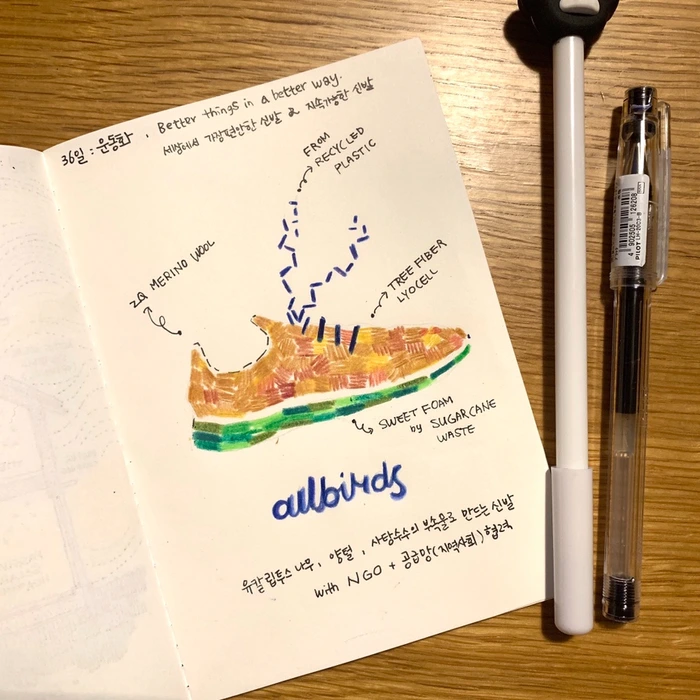 36일 : 운동화 , Better things in a better way.
세상에서 가장편안한 신발 & 지속가능한 신발
FROM
RECYCLED
PLASTIC
ZQ MERINO WOOL
TREE FIBER
LYOCELL
SWEET FOAM
by SUGARCANE
WASTE
allbirds
유칼립투스 나무, 양털, 사탕수수의 부속물로 만드는 신발
with NGO + 공급망(지역사회) 협력
4 902505 126208
PILOT LH-20C3-B